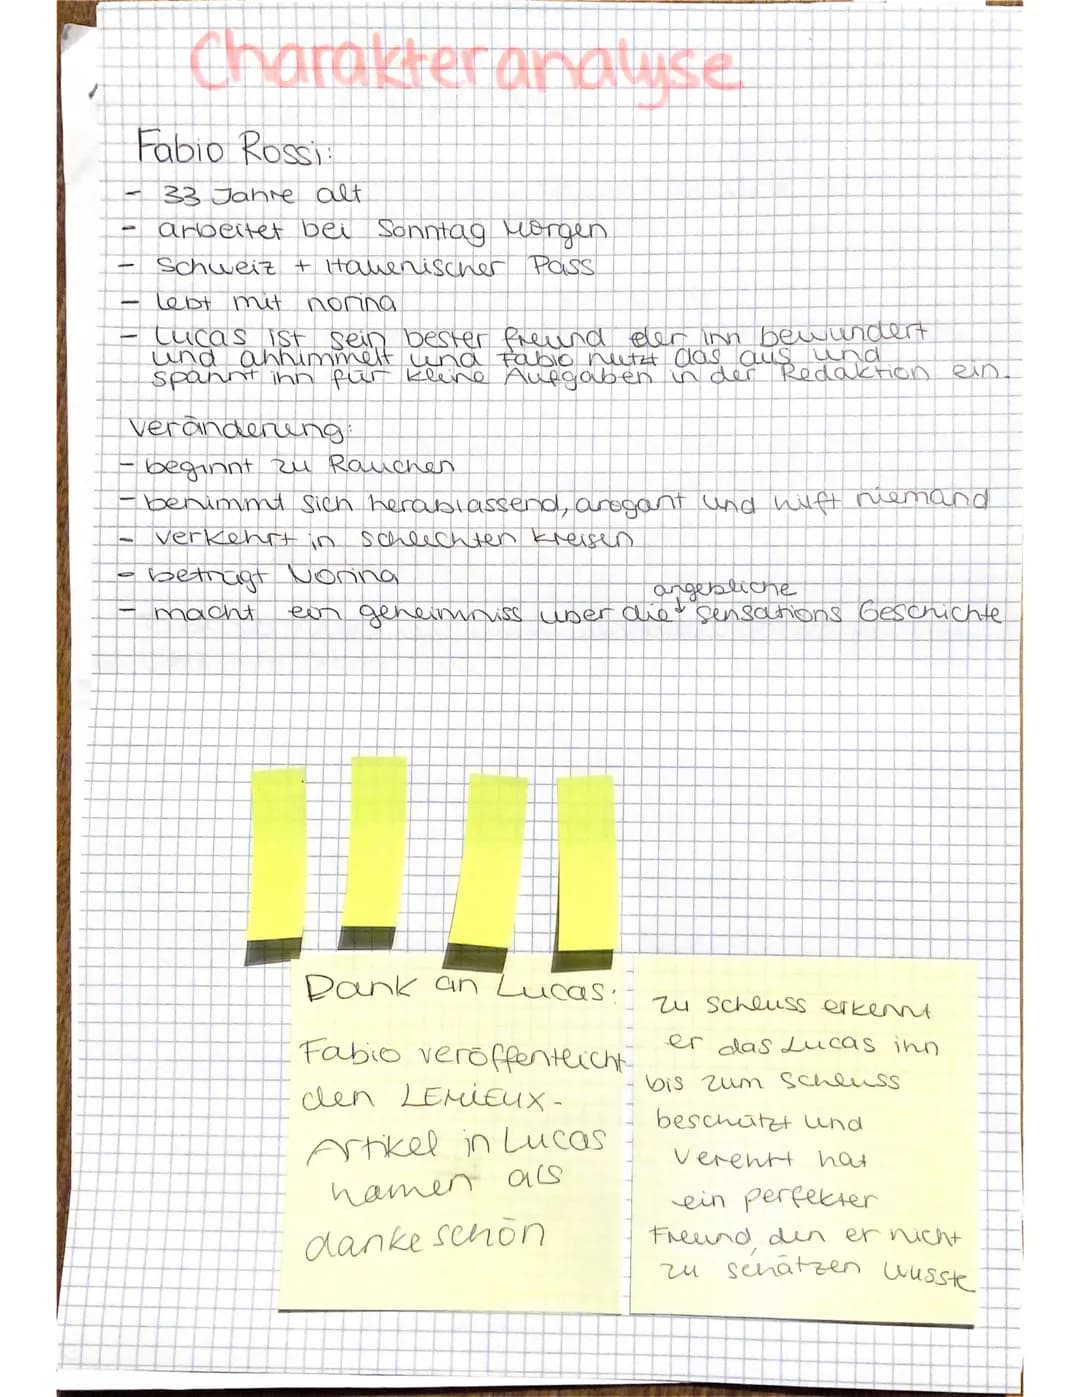 Charakteranalyse
Fabio Rossi:
- 33 Jahre alt
- arbeitet bei Sonntag Morgen
- Schweiz + Italienischer Pass
- lebt mit norina
- Lucas ist sein bester freund der inn bewundert
und anhimmelt und fabio nutzt das aus und
spannt ihn für kleine Aufgaben in der Redaktion ein.
veränderung:
- beginnt zu Rauchen
- benimmt sich herablassend, arogant und hilft niemand
- verkehrt in schlechten kreisen
- betrügt Norina
angebliche
- macht ein geheimniss über die sensations Geschichte
Dank an Lucas:
Fabio veröffentlicht
den LEMiEUX-
Artikel in Lucas
namen als
dankeschön
zu schluss erkennt
er das Lucas inn
bis zum schluss
beschützt und
verehrt hat
ein perfekter
Freund, den er nicht
zu schätzen wusste